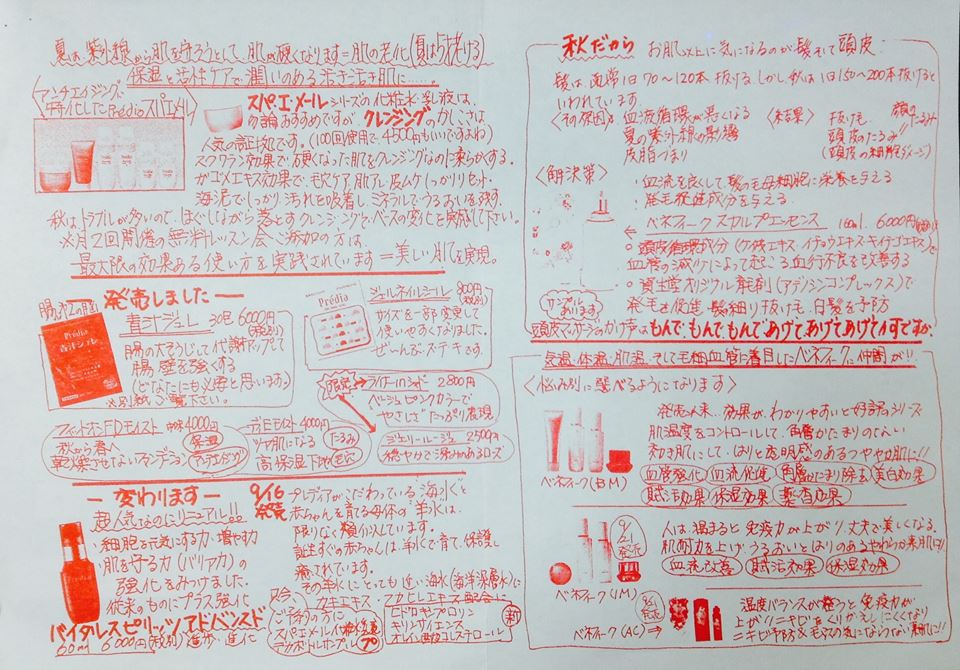 夏は、紫外線から肌を守ろうとして、肌が硬くなります=肌の老化
保湿と活性ケアで潤いのある活き活き肌に……
〈アンチエイジング
特化したPrediaスパエメル〉
スパ・エ・メールシリーズの化粧水・乳液は、
勿論おすすめですが、クレンジングの
人気の証拠です。(100回使用で4500円もいいですよね)
スクワラン効果で、硬くなった肌をクレンジングなのに柔らかくする。
がゴメエキス効果で、毛穴ケア、肌アレ・皮ムケしっかりリセット・
海泥でしっかり汚れを吸着し、ミネラルでうるおいを残す。
秋は、トラブルが多いので、ほぐしながら落とすクレンジングで、ベースの変化を実感して下さい。
※月2回開催の無料レッスン会ご参加の方は、
最大限の効果ある使い方を実践されています=美しい肌を実現。
発売しました
青汁ジュレ 30包 6000円
(税別)
腸の大そうじして代謝アップして
腸壁を強くする
(どなたにも必要と思います。)
※別紙ご覧下さい。
Predia
青汁ジュレ
ジェルネイルシール 800円
(税別)
サイズを一部変更して
使いやすくなりました。
ぜーんぶ・ステキです。
Predia
限定
2800円
ベージュピンクカラーで
やさしさたっぷり表現
ジェリールージュ 2500円
穏やかで深みのあるローズ
フィットオンFDモイスト 4000円
秋から春へ
乾燥させないファンデーション
保湿
アンチエイジング
デュモイスト 4000円
ツヤ肌になる
高保湿下地
たるみ
毛穴
ー変わりますー
超人気なのにリニューアル!!
・細胞を元気にする力・増やす力
・肌を守る力(バリア力)の
強化をみつけました。
従来のものにプラス強化
バイタレスピリッツ アドバンスド
60ml 6000円(税別) 進歩・進化
9/16
発売
プレディアがこだわっている"海水"と
赤ちゃんを育てる母体の"羊水"は、
限りなく類似しています。
誕生すぐの赤ちゃんは、羊水で育て、保護し
癒されています。
その羊水に、とっても近い海水(海洋深層水)に
カキエキス・アカヒレエキス配合に
ヒドロキシプロリン
キリンサイエンス
オレイン酸コレステロール
新
ご予約の方に
スパエメール
プ
秋だから お肌以上に気になるのが髪そして頭皮
髪は、通常1日70~120本抜ける。しかし秋は1日150~200本抜けると
いわれています。
〈その原因〉 血液循環が悪くなる
夏の紫外線の影響
皮脂づまり
〈結果〉 抜け毛
頭皮のたるみ
(頭皮の細胞ダメージ)
顔のたるみ!!
〈解決策〉
・血流を良くして、髪の毛母細胞に栄養を与える
・発毛促進成分を与える
← ベネフィーク スカルプエッセンス 6000円
○頭皮循環成分(ケイ酸エキス・イチョウエキス・キイチゴエキス)で
血管の減少によって起こる血行不良を改善する
○資生堂オリジナル育毛剤(アデノシンコンプレックス)で
発毛を促進・髪細り抜け毛、白髪を予防
サンプル
あります
頭皮マッサージのかけ声は、もんで、もんで、もんで、あげて、あげて、あげて、何ですか、
気温・体温・肌温、そして毛細血管に着目したベネフィークの仲間が!!
〈悩み別に選べるようになります〉
発売以来、効果が、わかりやすいと好評シリーズ
肌温度をコントロールして、角層がたまりのない
和き肌にして、はりと透明感のあるつやつや肌に!!
血管強化 血流促進 角層だまり除去 美白効果
賦活効果 保湿効果 薬用効果
ベネフィーク(BM)
9/21
発売
人は、温まると免疫力が上がり、丈夫で美しくなる。
肌耐力を上げ、うるおいとはりのあるやわらか素肌に!!
血流改善 賦活効果 保湿効果
ベネフィーク(IM)
9/21
発売
ベネフィーク(AC)⇒
温度バランスが整うと免疫力が
上がり、ニキビをくりかえしにくくなり
ニキビ予防&毛穴の気にならない素肌に!!